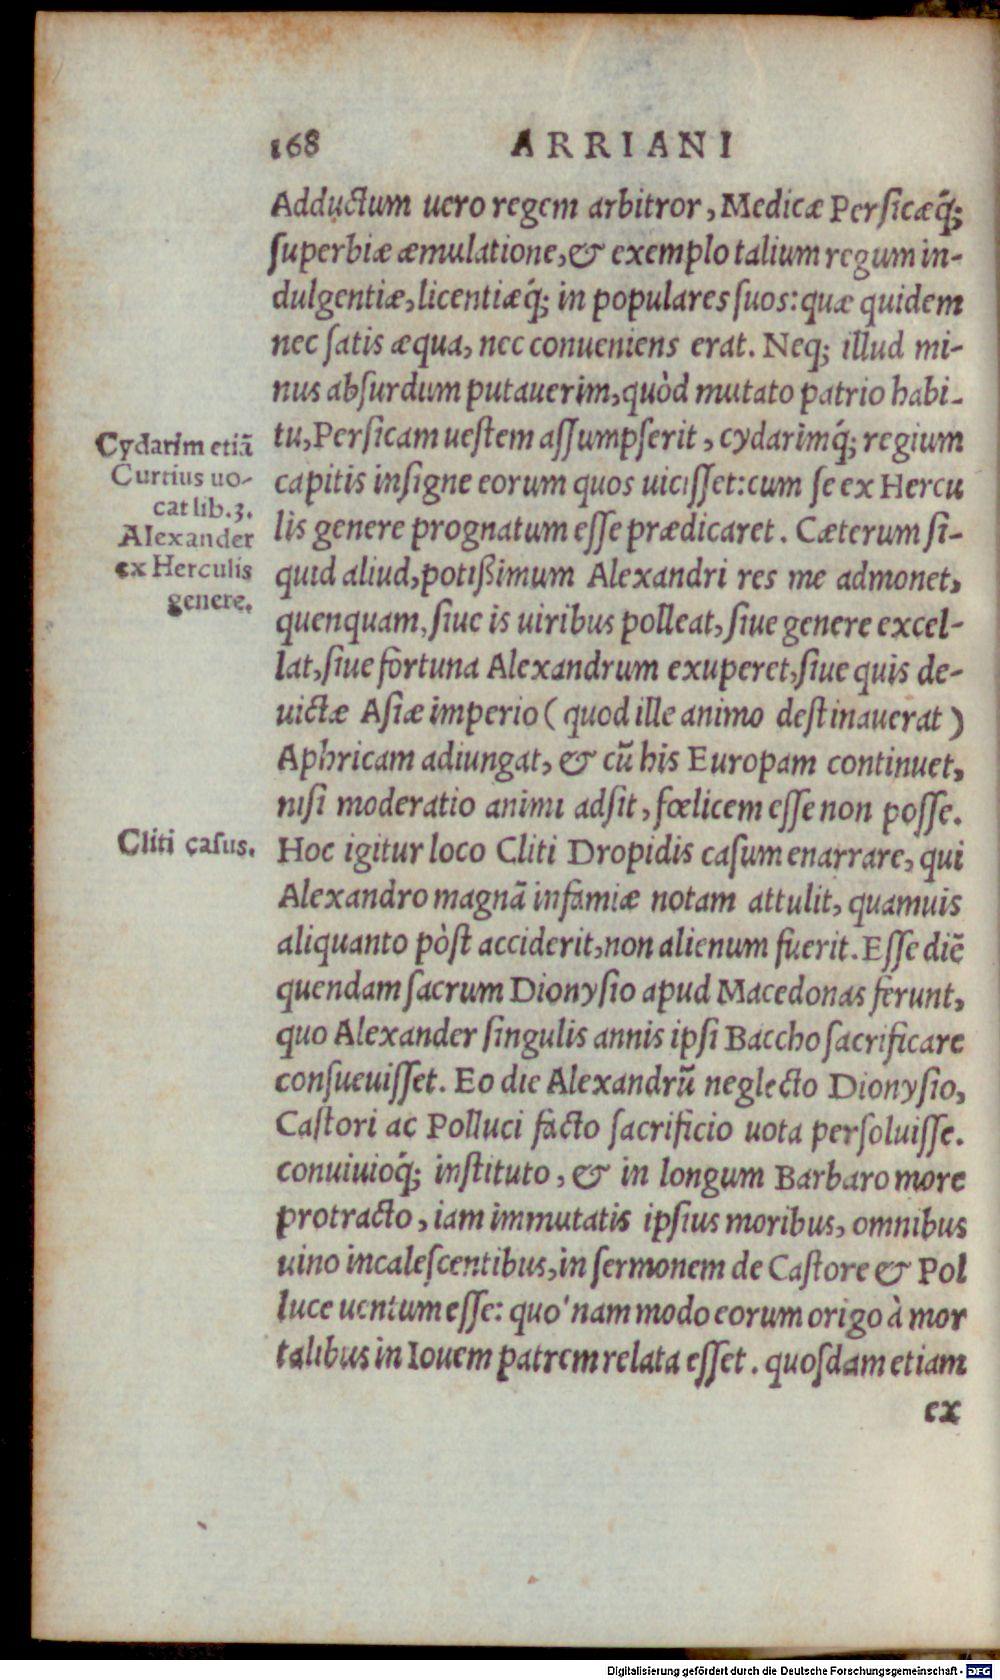 168 ARRIANI
Adductum uero regem arbitror, Medicæ Persicæq́;
superbiæ æmulatione, & exemplo talium regum in-
dulgentiæ, licentiæq́; in populares suos: quæ quidem
nec satis æqua, nec conueniens erat. Neq; illud mi-
nus absurdum putauerim, quòd mutato patrio habi-
tu, Persicam uestem assumpserit, cydarimq́; regium
capitis insigne eorum quos uicisset: cum se ex Hercu
lis genere prognatum esse prædicaret. Cæterum si-
quid aliud, potißimum Alexandri res me admonet,
quenquam, siue is uiribus polleat, siue genere excel-
lat, siue fortuna Alexandrum exuperet, siue quis de-
uictæ Asiæ imperio ( quod ille animo destinauerat )
Aphricam adiungat, & cū his Europam continuet,
nisi moderatio animi adsit, fœlicem esse non posse.
Hoc igitur loco Cliti Dropidis casum enarrare, qui
Alexandro magnā infamiæ notam attulit, quamuis
aliquanto pòst acciderit, non alienum fuerit. Esse diē
quendam sacrum Dionysio apud Macedonas ferunt,
quo Alexander singulis annis ipsi Baccho sacrificare
consueuisset. Eo die Alexandrū neglecto Dionysio,
Castori ac Polluci facto sacrificio uota persoluisse.
conuiuioq́; instituto, & in longum Barbaro more
protracto, iam immutatis ipsius moribus, omnibus
uino incalescentibus, in sermonem de Castore & Pol
luce uentum esse: quo'nam modo eorum origo à mor
talibus in Iouem patrem relata esset. quosdam etiam
ex
Cydarim etiā
Curtius uo-
cat lib.3.
Alexander
ex Herculis
genere.
Cliti casus.
Digitalisierung gefördert durch die Deutsche Forschungsgemeinschaft - DFG